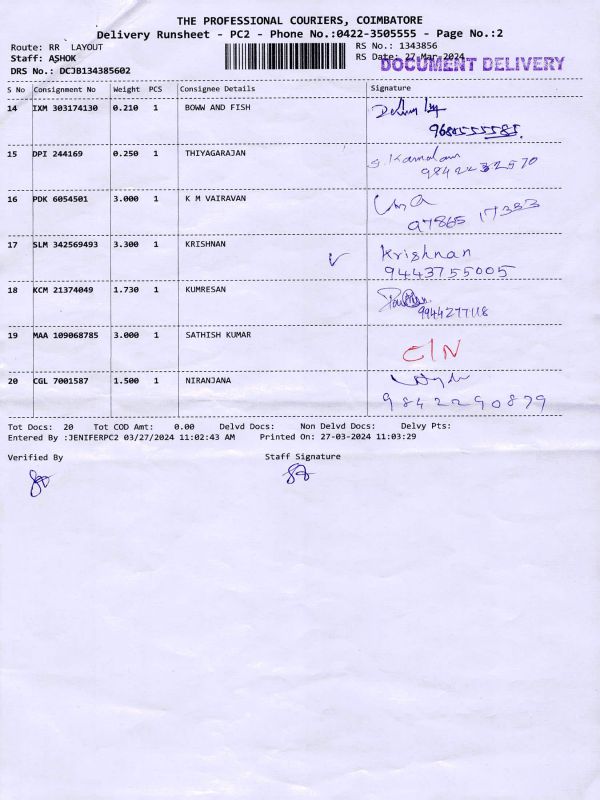 THE PROFESSIONAL COURIERS, COIMBATORE
Delivery Runsheet - PC2 - Phone No.:0422-3505555 - Page No.:2
Route: RR LAYOUT
RS No.: 1343856
Staff: ASHOK
RS Date: 27-Mar-2024
DOCUMENT DELIVERY
DRS No.: DCJB134385602
S No Consignment No Weight PCS Consignee Details Signature
14 IXM 303174130 0.210 1 BOWW AND FISH
15 DPI 244169 0.250 1 THIYAGARAJAN
S. Kamalam
9842432570
16 PDK 6054501 3.000 1 K M VAIRAVAN
97865 17353
17 SLM 342569493 3.300 1 KRISHNAN
Krishnan
9443755005
18 KCM 21374049 1.730 1 KUMRESAN
9944277118
19 MAA 109068785 3.000 1 SATHISH KUMAR
C/N
20 CGL 7001587 1.500 1 NIRANJANA
9842290879
Tot Docs: 20 Tot COD Amt: 0.00 Delvd Docs: Non Delvd Docs: Delvy Pts:
Entered By :JENIFERPC2 03/27/2024 11:02:43 AM Printed On: 27-03-2024 11:03:29
Verified By Staff Signature